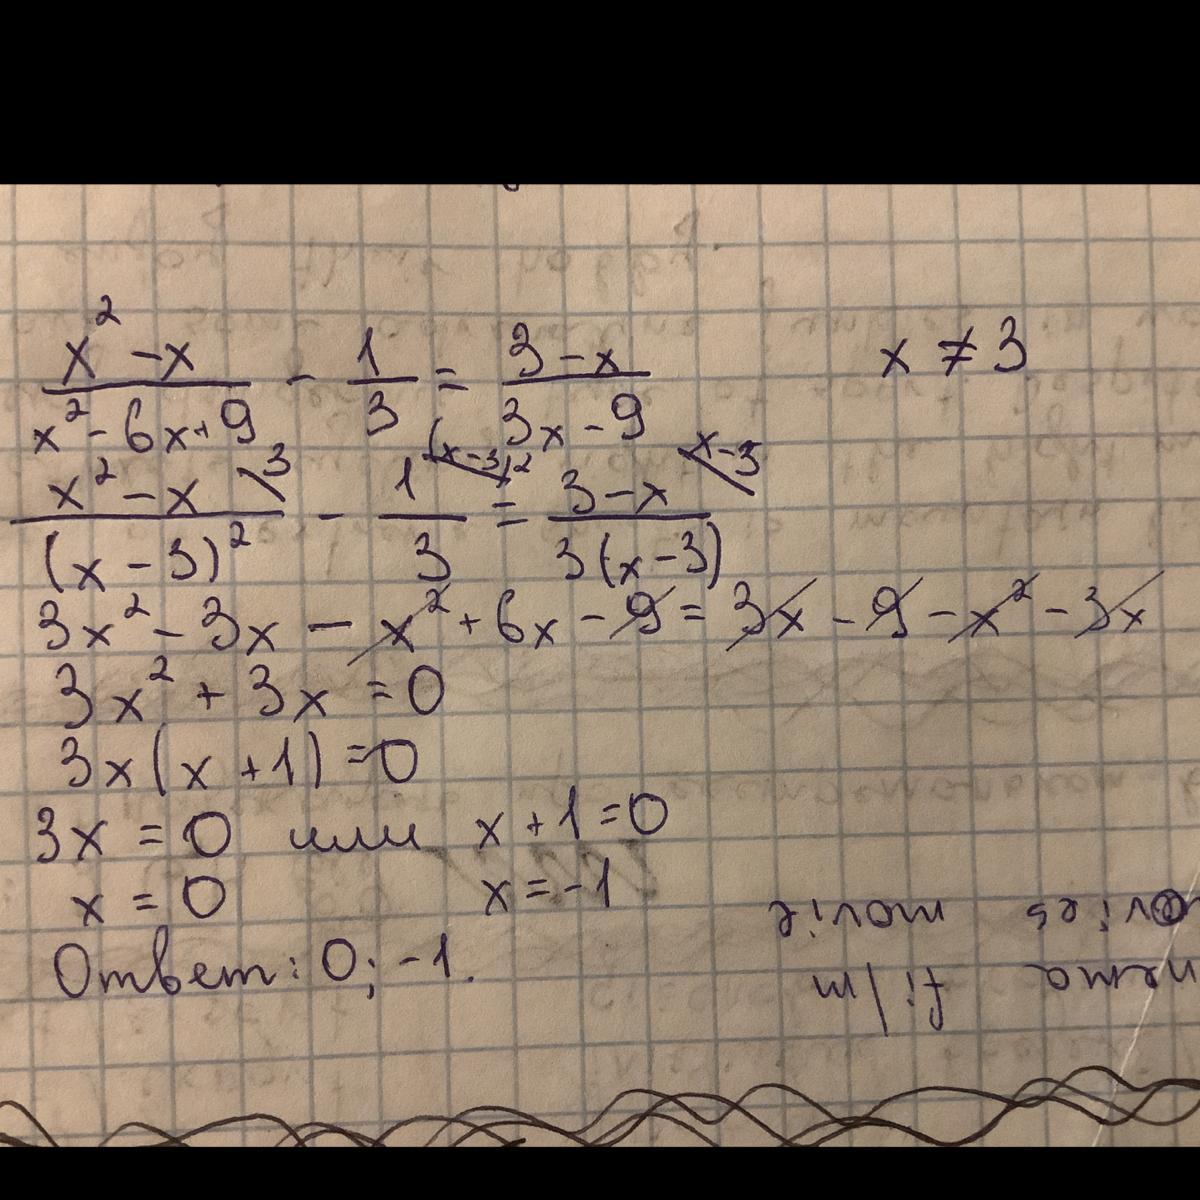 x² - x / x² - 6x + 9 - 1/3 = 3 - x / 3x - 9 x ≠ 3
x² - x \3 / (x - 3)² - 1 \(x - 3)² / 3 = 3 - x \x - 3 / 3(x - 3)
3x² - 3x - x² + 6x - 9 = 3x - 9 - x² - 3x
3x² + 3x = 0
3x(x + 1) = 0
3x = 0 или x + 1 = 0
x = 0 x = -1
Ответ: 0; -1.
film
movie